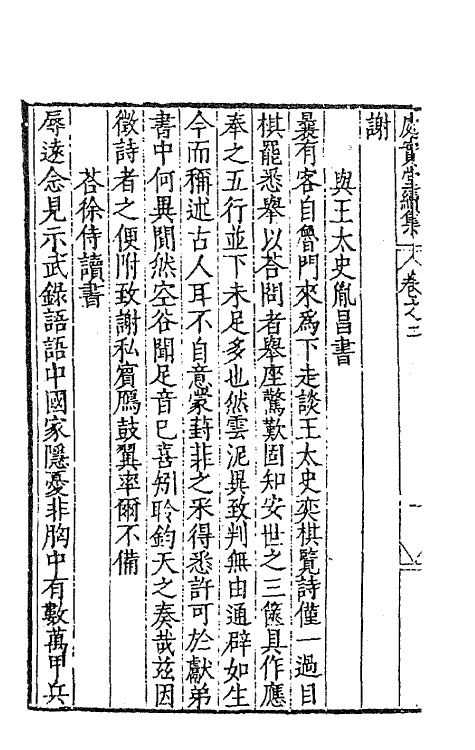 處實堂續集 卷之二
謝
與王太史胤昌書
曩有客自魯門來爲下走談王太史奕棋覽詩僅一過目
棋罷悉舉以荅問者舉座驚歎固知安世之三篋具作應
奉之五行並下未足多也然雲泥異致判無由通辟如生
今而稱述古人耳不自意蒙葑非之采得悉許可於獻弟
書中何異聞然空谷聞足音已喜矧聆鈞天之奏哉兹因
徵詩者之便附致謝私賓鴈鼓翼率爾不備
荅徐侍讀書
辱逺念見示武錄語語中國家隱憂非胸中有數萬甲兵